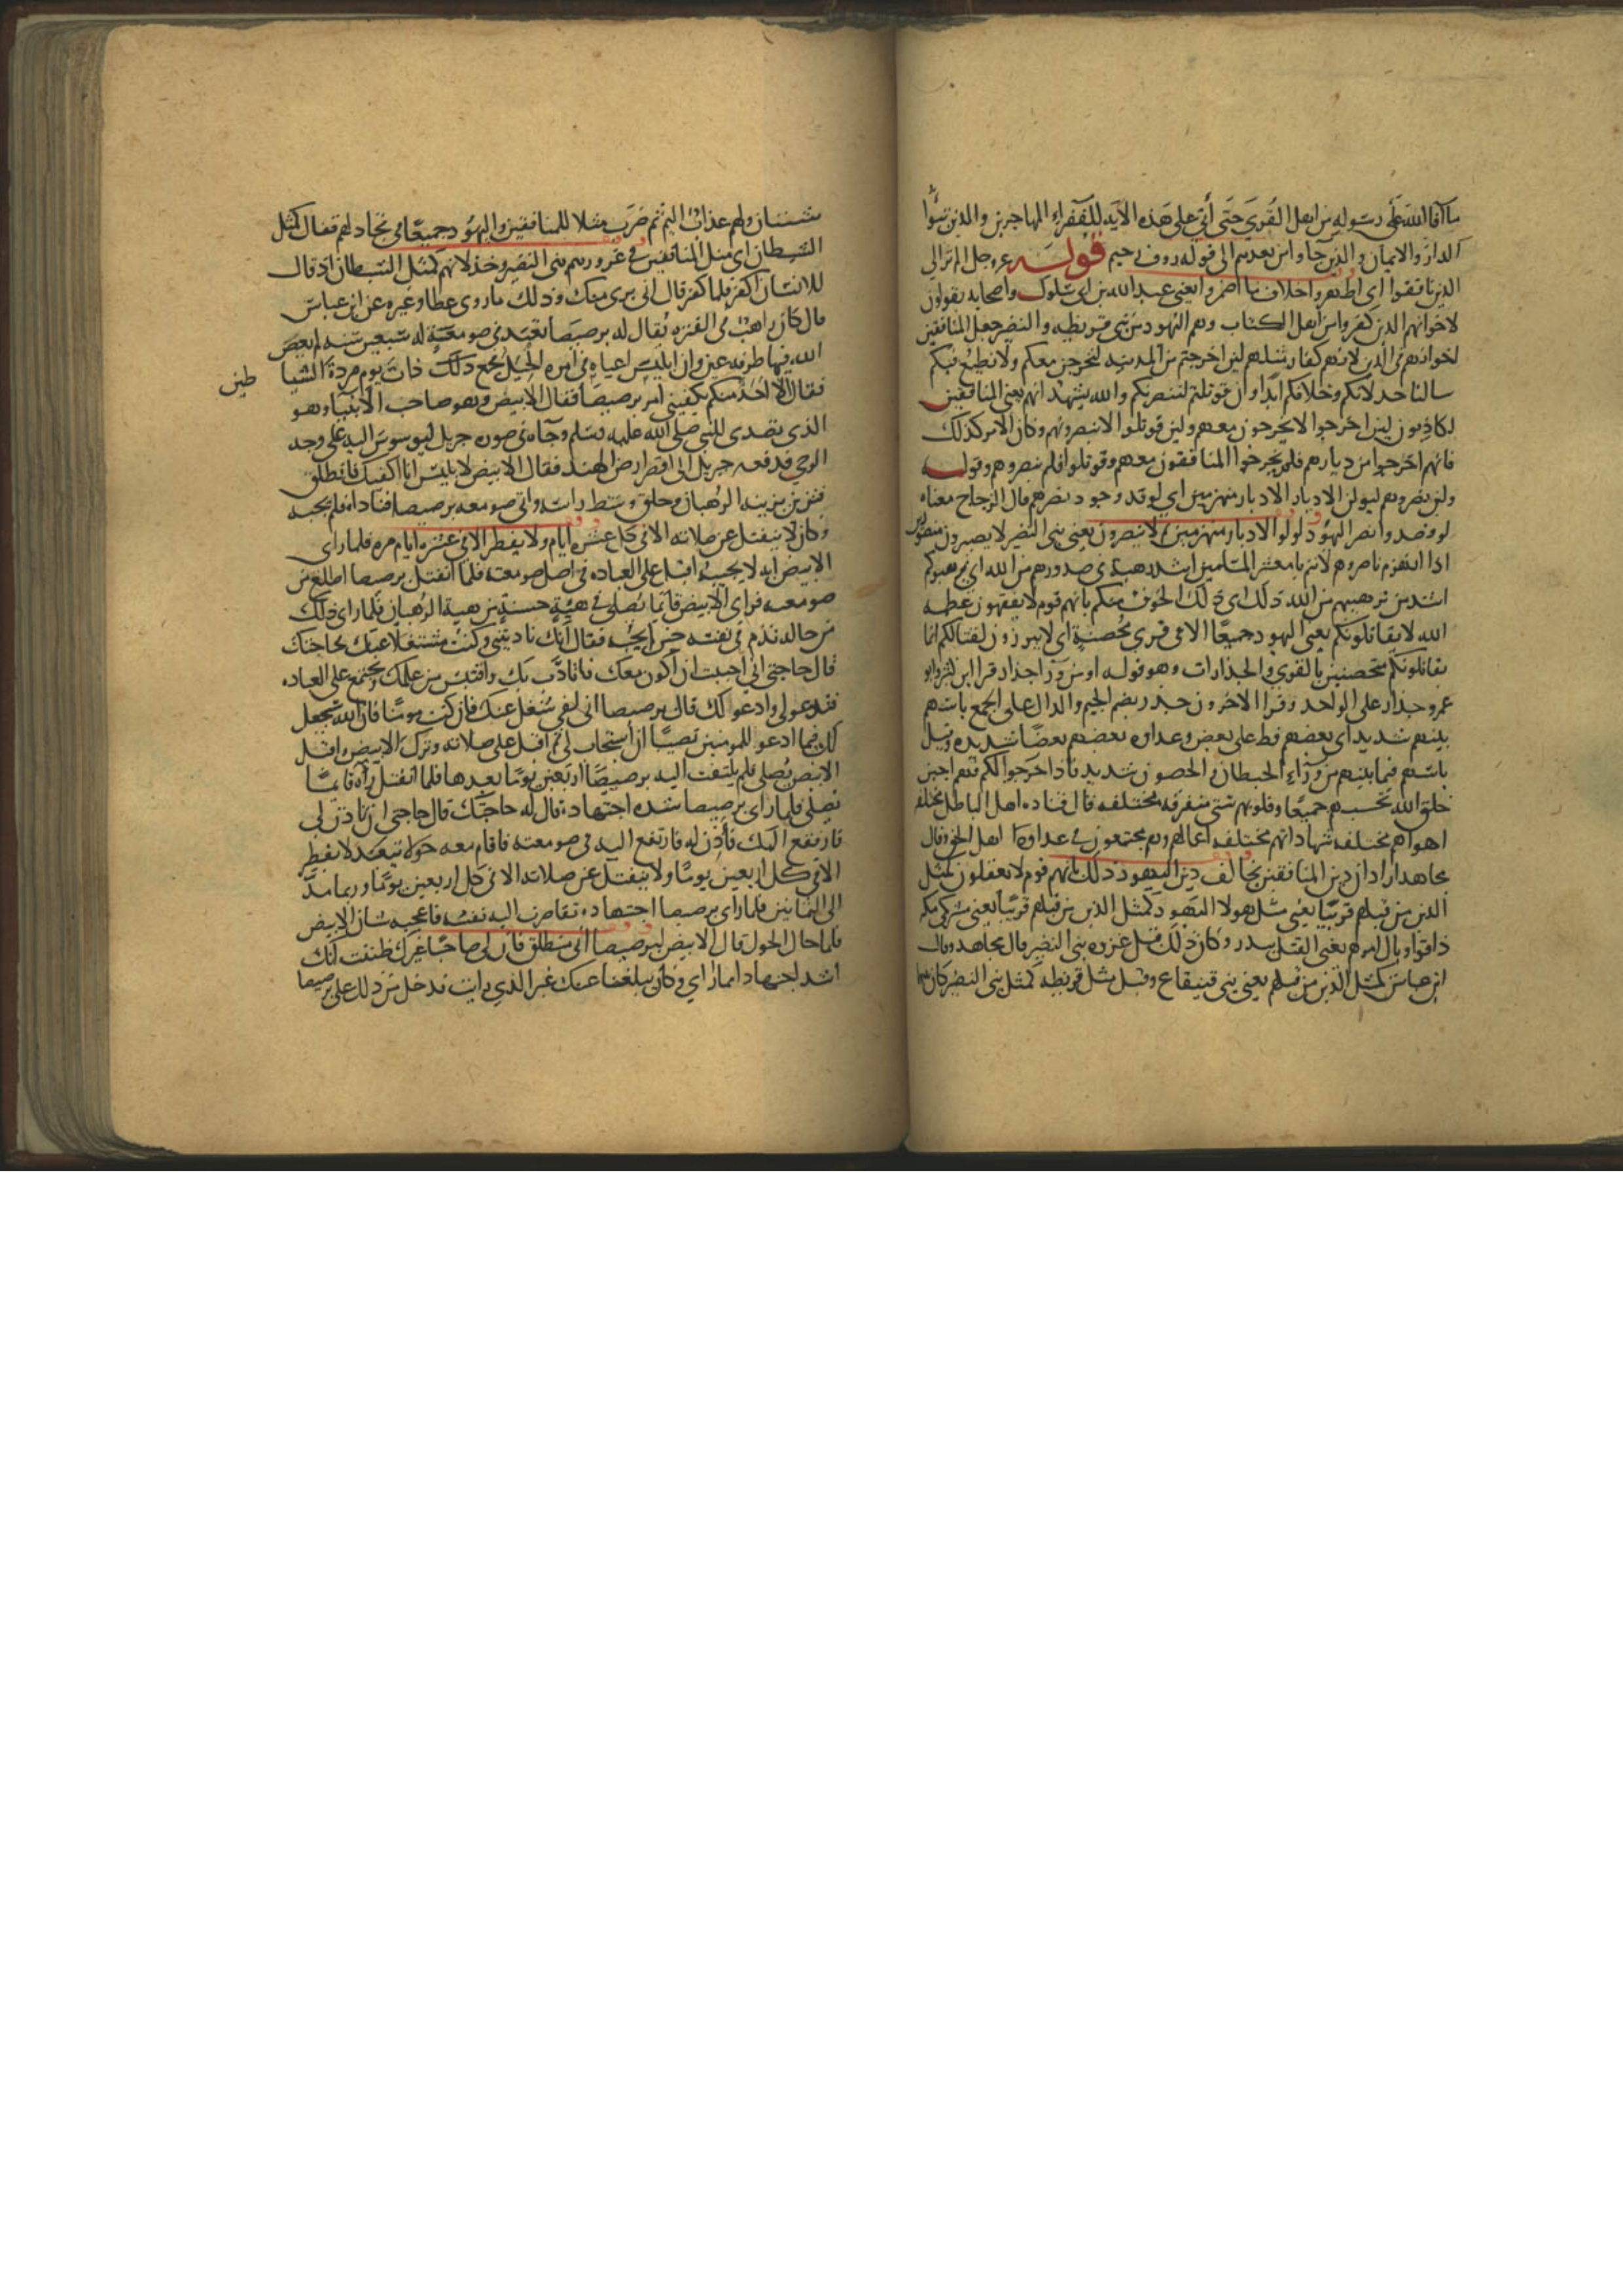 ما آفا الله على رسوله من اهل القرى حتى أتي على هذه الآية للفقراء المهاجرين والذين تبوّا
الدار والايمان والذين جاوا من بعدهم الى قوله روف رحيم قوله عز وجل الم تر الي
الذين نافقوا اى اظهروا خلاف ما اضمروا يعني عبد الله بن ابي سلوك واصحابه يقولون
لاخوانهم الذين كفروا من اهل الكتاب وهم اليهود من بني قريظه والنضير جعل المنافقين
اخوانهم في الدين لانهم كفار مثلهم لين اخرجتم من المدينه لنخرجن معكم ولا نطيع فيكم
سالنا خذلانكم وخلافكم ابدا وان قوتلتم لننصرنكم والله يشهد انهم يعني المنافقين
لكاذبون لين اخرجوا لا يخرجون معهم ولين قوتلوا لا ينصرونهم وكان الامر كذلك
فانهم اخرجوا من ديارهم فلم يخرجوا المنافقون معهم وقوتلوا فلم ينصروهم وقوله
ولين نصروهم ليولن الادبار الادبار منهزمين اي لو قد وجود نصرهم قال الزجاج معناه
لو قصدوا نصر اليهود لولوا الادبار منهزمين ثم لا ينصرون يعني بني النضير لا يصيرون منصورين
اذا انهزم ناصروهم لانتم يا معشر المسلمين اشد رهبة في صدورهم من الله اي يرهبوكم
اشد من ترهبهم من الله ذلك اى ذلك الخوف منكم بانهم قوم لا يفقهون عظمه
الله لا يقاتلونكم يعني اليهود جميعا الا في قرى محصنة اي لا يبرزون لقتالكم انما
يقاتلونكم متحصنين بالقرى والجدارات وهو قوله او من ورا جدار قرا ابن كثير وابو
عمرو جدار على الواحد وقرا الاخرون جدر بضم الجيم والدال على الجمع باسهم
بينهم شديد اى بعضهم فظ على بعض وعداوه بعضهم بعضا شديده وقيل
باسهم فيما بينهم من وراء الحيطان والحصون شديد فاذا خرجوا لكم فهم اجبن
خلق الله تحسبهم جميعا وقلوبهم شتى متفرقه مختلفه قال قتاده اهل الباطل مختلفه
اهواهم مختلفه شهاداتهم مختلفه اعمالهم وهم مجتمعون في عداوه اهل الحق وقال
مجاهد اراد ان دين المنافقين يخالف دين اليهود ذلك بانهم قوم لا يعقلون كمثل
الذين من قبلهم قريبا يعني مثل هولا اليهود كمثل الذين من قبلهم قريبا يعني مشركي مكه
ذاقوا وبال امرهم يعني القتل ببدر وكان ذلك قبل غزوه بني النضير قال مجاهد وقال
ابن عباس كمثل الذين من قبلهم يعني بني قينقاع وقيل مثل قريظه كمثل بني النضير كان
سنتان ولهم عذاب اليم ثم ضرب مثلا للمنافقين واليهود جميعا في تخاذلهم فقال كمثل
الشيطان اى مثل المنافقين في غرورهم بني النضير وخذلانهم كمثل الشيطان اذ قال
للانسان اكفر فلما كفر قال اني بري منك وذلك ما روى عطا وغيره عن ابن عباس
قال كان راهب في الفتره يقال له برصيصا تعبد في صومعة له سبعين سنه لم يعص
الله فيها طرفه عين وان ابليس اعياه في امره الحيل فجمع ذلك ذات يوم مردة الشيا
طين
فقال الا احد منكم يكفيني امر برصيصا فقال الابيض وهو صاحب الانبيا وهو
الذى تصدى للنبي صلى الله عليه وسلم وجاه في صوره جبريل ليوسوس اليه على وجه
الوحي فدفعه جبريل الى اقصى ارض الهند فقال الابيض لابليس انا اكفيك فانطلق
فتزين بزينه الرهبان وحلق وسط راسه واتى صومعه برصيصا فناداه فلم يجبه
وكان لا ينفتل عن صلاته الا في كل عشره ايام ولا يفطر الا في عشره ايام مره فلما راى
الابيض انه لا يجيبه اقبل على العباده في اصل صومعته فلما انفتل برصيصا اطلع من
صومعته فراى الابيض قائما يصلى في هيئة حسنة من هيية الرهبان فلما راى ذلك
من حاله ندم في نفسه حين لم يجبه فقال انك ناديتني وكنت مشتغلا عنك فما حاجتك
قال حاجتي اني احببت ان اكون معك فاتادب بك واقتبس من علمك ونجتمع على العباده
فتدعو لي وادعو لك قال برصيصا اني لفي شغل عنك فان كنت مومنا فان الله سيجعل
لك فيما ادعو للمومنين نصيبا ان استجاب لي ثم اقبل على صلاته وترك الابيض واقبل
الابيض يصلي فلم يلتفت اليه برصيصا اربعين يوما بعدها فلما انفتل رآه قايما
يصلى فلما راى برصيصا شده اجتهاده قال له حاجتك قال حاجتي ان تاذن لى
فارتفع اليك فاذن له فارتفع اليه في صومعته فاقام معه حولا يتعبد لا يفطر
الا في كل اربعين يوما ولا ينفتل عن صلاته الا في كل اربعين يوما وربما مدّ
الى الثمانين فلما راى برصيصا اجتهاده تقاصرت اليه نفسه فاعجبه شان الابيض
فلما حال الحول قال الابيض لبرصيصا اني منطلق فان لي صاحبا غيرك ظننت انك
اشد اجتهادا مما ارى وكان يبلغنا عنك غير الذي رايت فدخل من ذلك على برصيصا